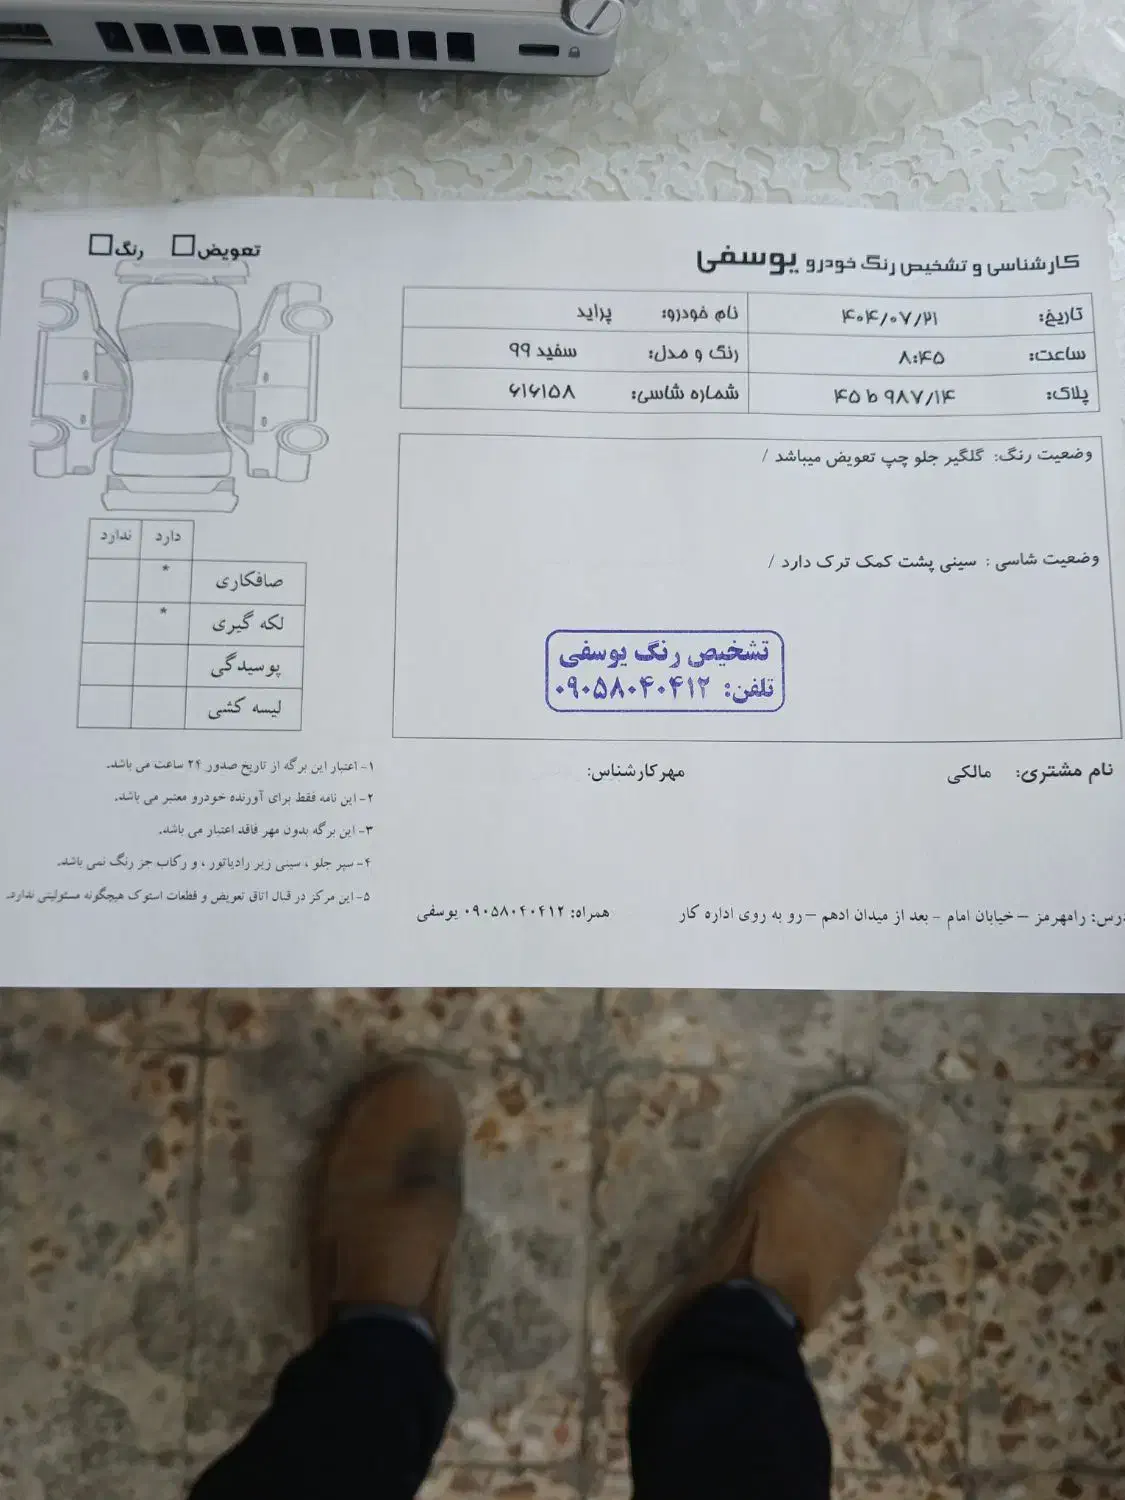 کارشناسی و تشخیص رنگ خودرو یوسفی
تعویض رنگ
تاریخ: ۴۰۴/۰۷/۲۱ نام خودرو: پراید
ساعت: ۸:۴۵ رنگ و مدل: سفید ۹۹
پلاک: ۴۵ ط ۹۸۷/۱۴ شماره شاسی: ۶۱۶۱۵۸
وضعیت رنگ: گلگیر جلو چپ تعویض میباشد /
وضعیت شاسی : سینی پشت کمک ترک دارد /
تشخیص رنگ یوسفی
تلفن: ۰۹۰۵۸۰۴۰۴۱۲
دارد ندارد
صافکاری *
لکه گیری *
پوسیدگی
لیسه کشی
نام مشتری: مالکی مهرکارشناس:
۱- اعتبار این برگه از تاریخ صدور ۲۴ ساعت می باشد.
۲- این نامه فقط برای آورنده خودرو معتبر می باشد.
۳- این برگه بدون مهر فاقد اعتبار می باشد.
۴- سپر جلو ، سینی زیر رادیاتور ، و رکاب جز رنگ نمی باشد.
۵- این مرکز در قبال اتاق تعویض و قطعات استوک هیچگونه مسئولیتی ندارد.
درس: رامهرمز – خیابان امام - بعد از میدان ادهم – رو به روی اداره کار همراه: ۰۹۰۵۸۰۴۰۴۱۲ یوسفی